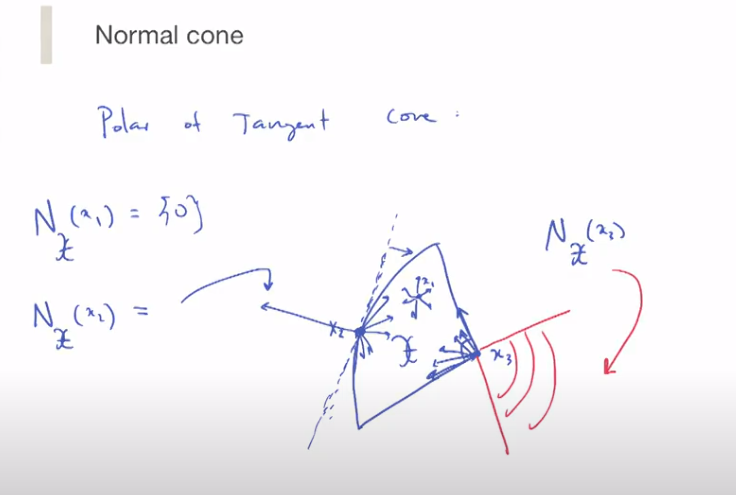 Normal cone
Polar of Tangent Cone :
N_X(x₁) = {0}
N_X(x₂) =
N_X(x₃)
x₁
x₂
X
x₃